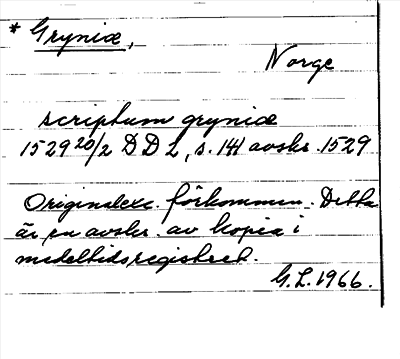 * Gryniæ,
Norge
scriptum gryniæ
1529 20/2 DD 2, s. 141 avskr. 1529
Originalex. förkommen. Detta
är en avskr. av kopia i
medeltidsregistret.
G.L. 1966.